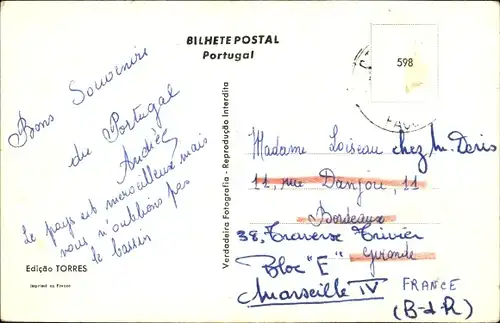 BILHETE POSTAL
Portugal
598
Bons Souvenirs
du Portugal
Andrée
Le pays est merveilleux mais
nous n'oublions pas
le bassin
Edição TORRES
Verdadeira Fotografia - Reprodução Interdita
Madame Loiseau chez M. Denis
11, rue Danjou, 11
Bordeaux
38, Traverse Tivier
Bloc "E" Gironde
Marseille IV FRANCE
(B-d-R)